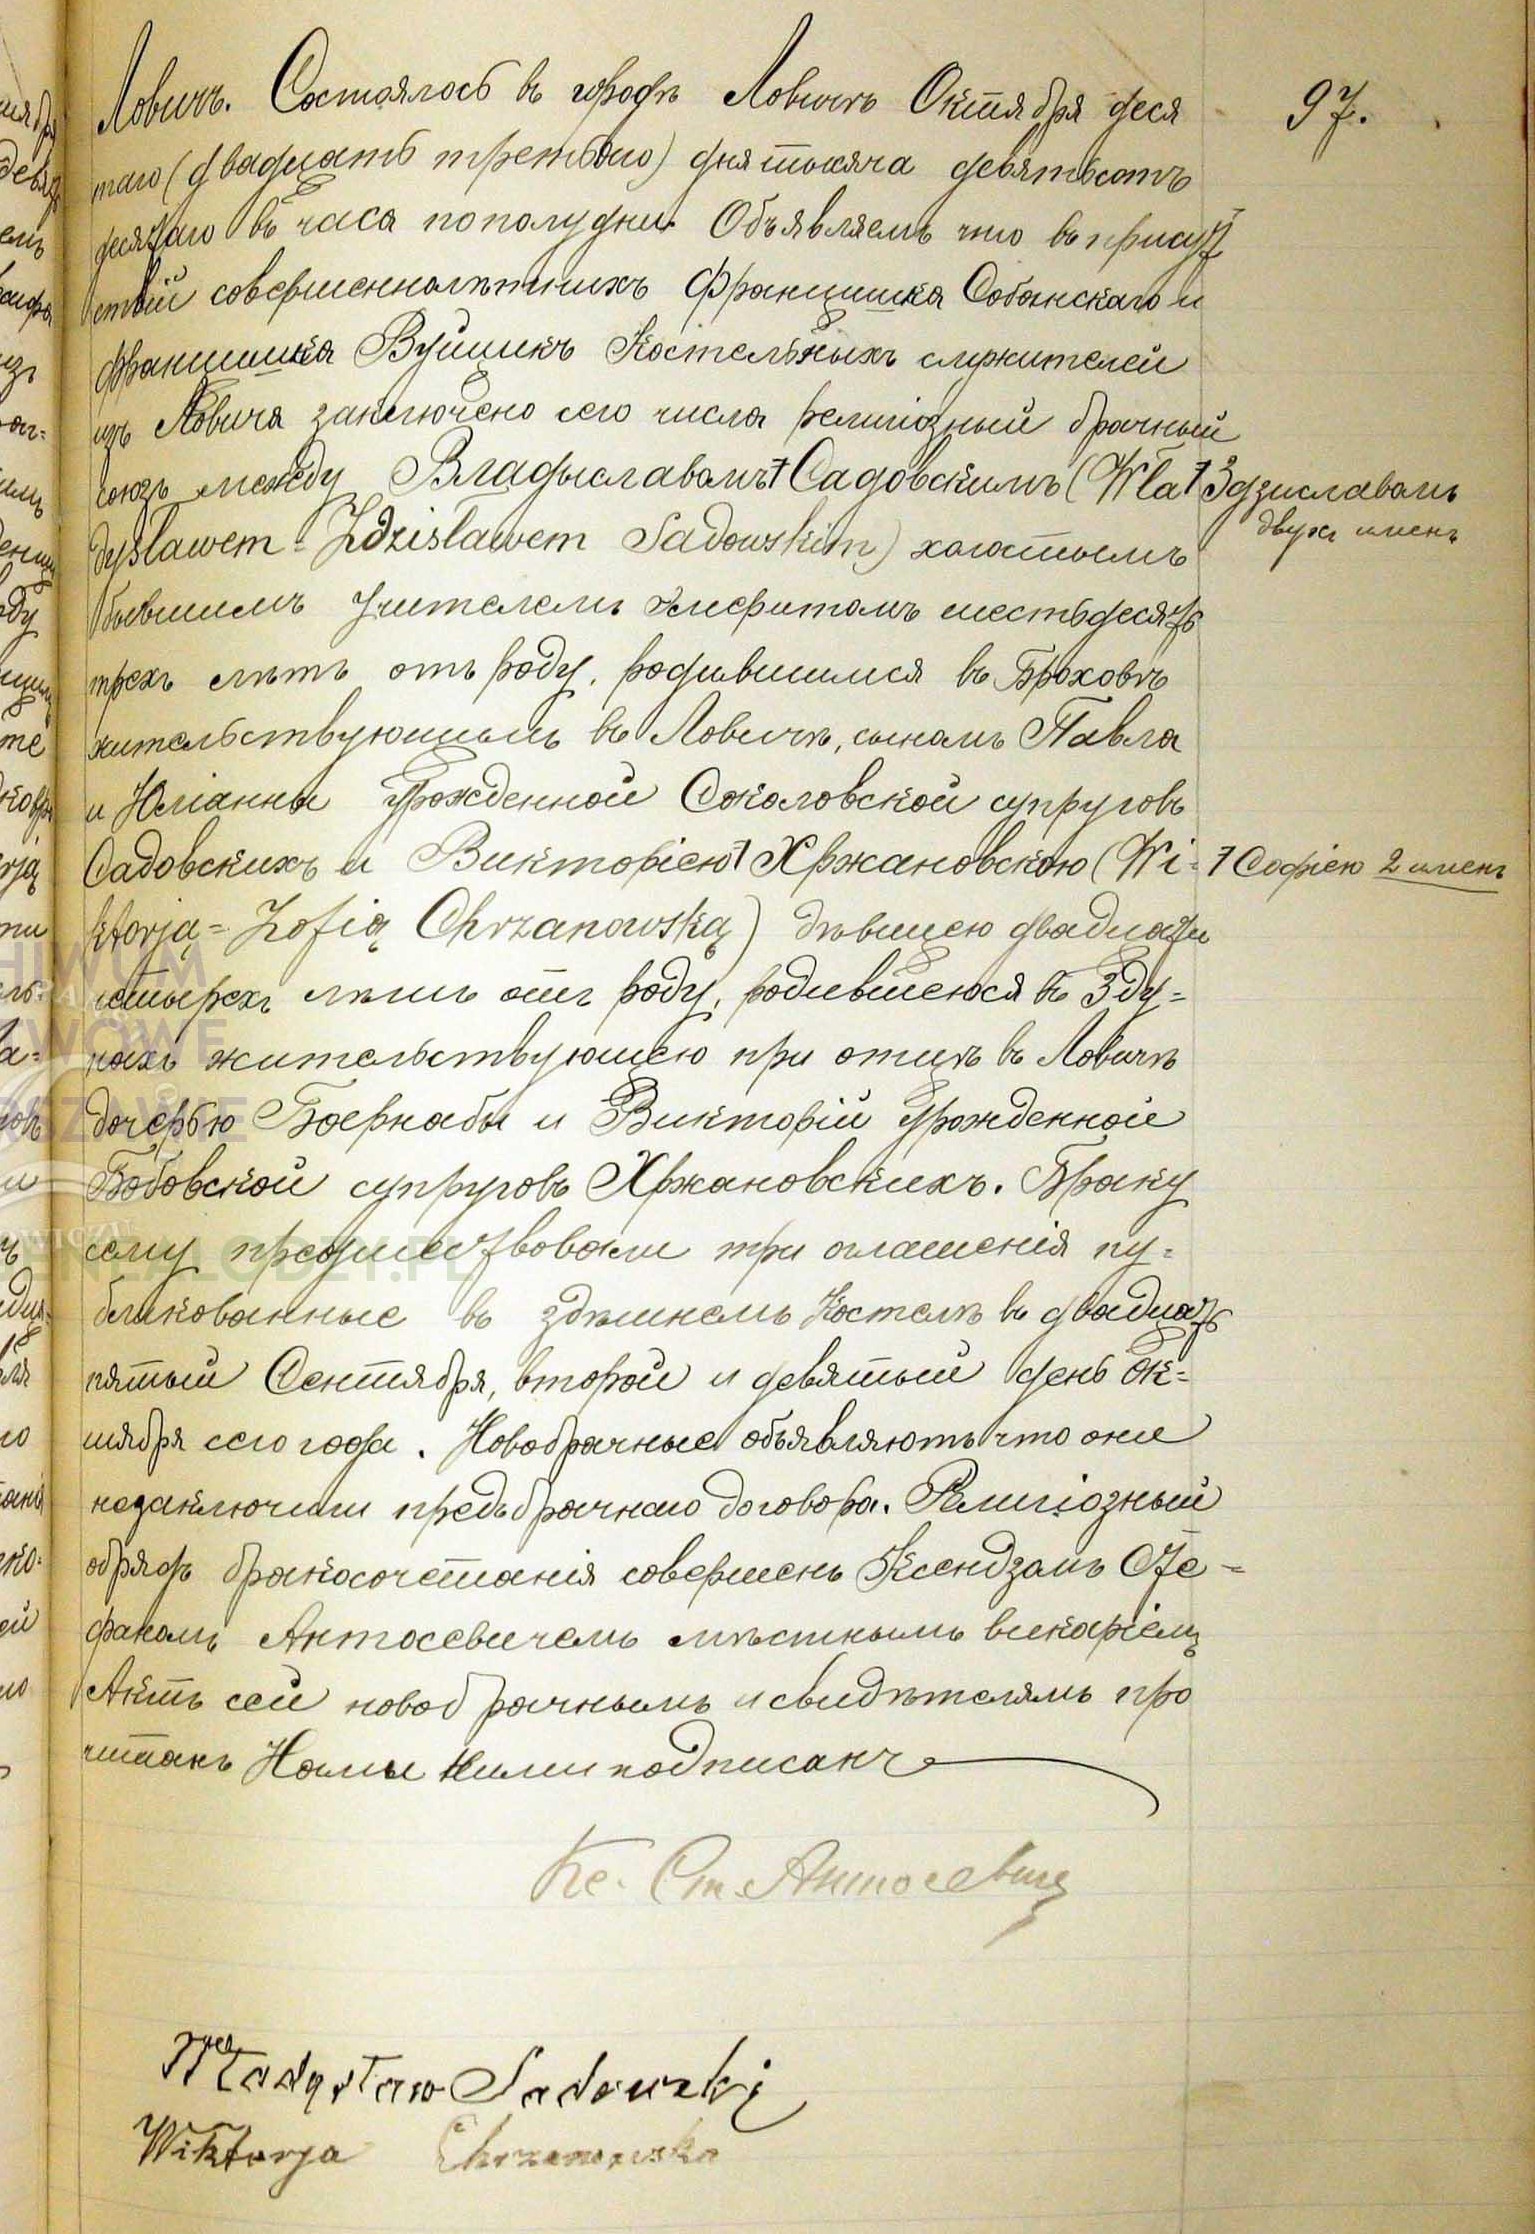 Ловичъ. Состоялось въ городѣ Ловичѣ Октября деся
97.
таго (двадцать третьяго) дня тысяча девятьсотъ
десятаго въ часа пополудни. Объявляемъ что въ присут
ствіи совершеннолѣтнихъ Францишка Собанскаго и
Францишка Вуйцикъ Костельныхъ служителей
изъ Ловича заключено сего числа религіозный брачный
союзъ между Владыславомъ + Садовскимъ (Wła
+ Здзиславомъ
двухъ именъ
dysławem = Zdzisławem Sadowskim) холостымъ
бывшимъ Учителемъ Эмеритомъ шестьдесятъ
трехъ лѣтъ отъ роду, родившимся въ Броховѣ
жительствующимъ въ Ловичѣ, сыномъ Павла
и Юліанны урожденной Соколовской супруговъ
Садовскихъ и Викторіею + Хржановскою (Wi=
+ Софіею 2 именъ
ktorją = Zofią Chrzanowską) дѣвицею двадцати
четырехъ лѣтъ отъ роду, родившеюся въ Зду=
нахъ жительствующею при отцѣ въ Ловичѣ
дочерью Боернабы и Викторіи урожденной
Бобовской супруговъ Хржановскихъ. Браку
сему предшествовали три оглашенія пу=
бликованные въ здѣшнемъ Костелѣ въ двадцать
пятый Сентября, второй и девятый день Ок=
тября сего года. Новобрачные объявляютъ что они
незаключили предъбрачнаго договора. Религіозный
обрядъ бракосочетанія совершенъ Ксендзомъ Сте=
фаномъ Антосевичемъ мѣстнымъ викаріемъ
Актъ сей новобрачнымъ и свидѣтелямъ про
читанъ Нами и ими подписанъ
Кс. Ст. Антосевичъ
Władysław Sadowski
Wiktorja Chrzanowska